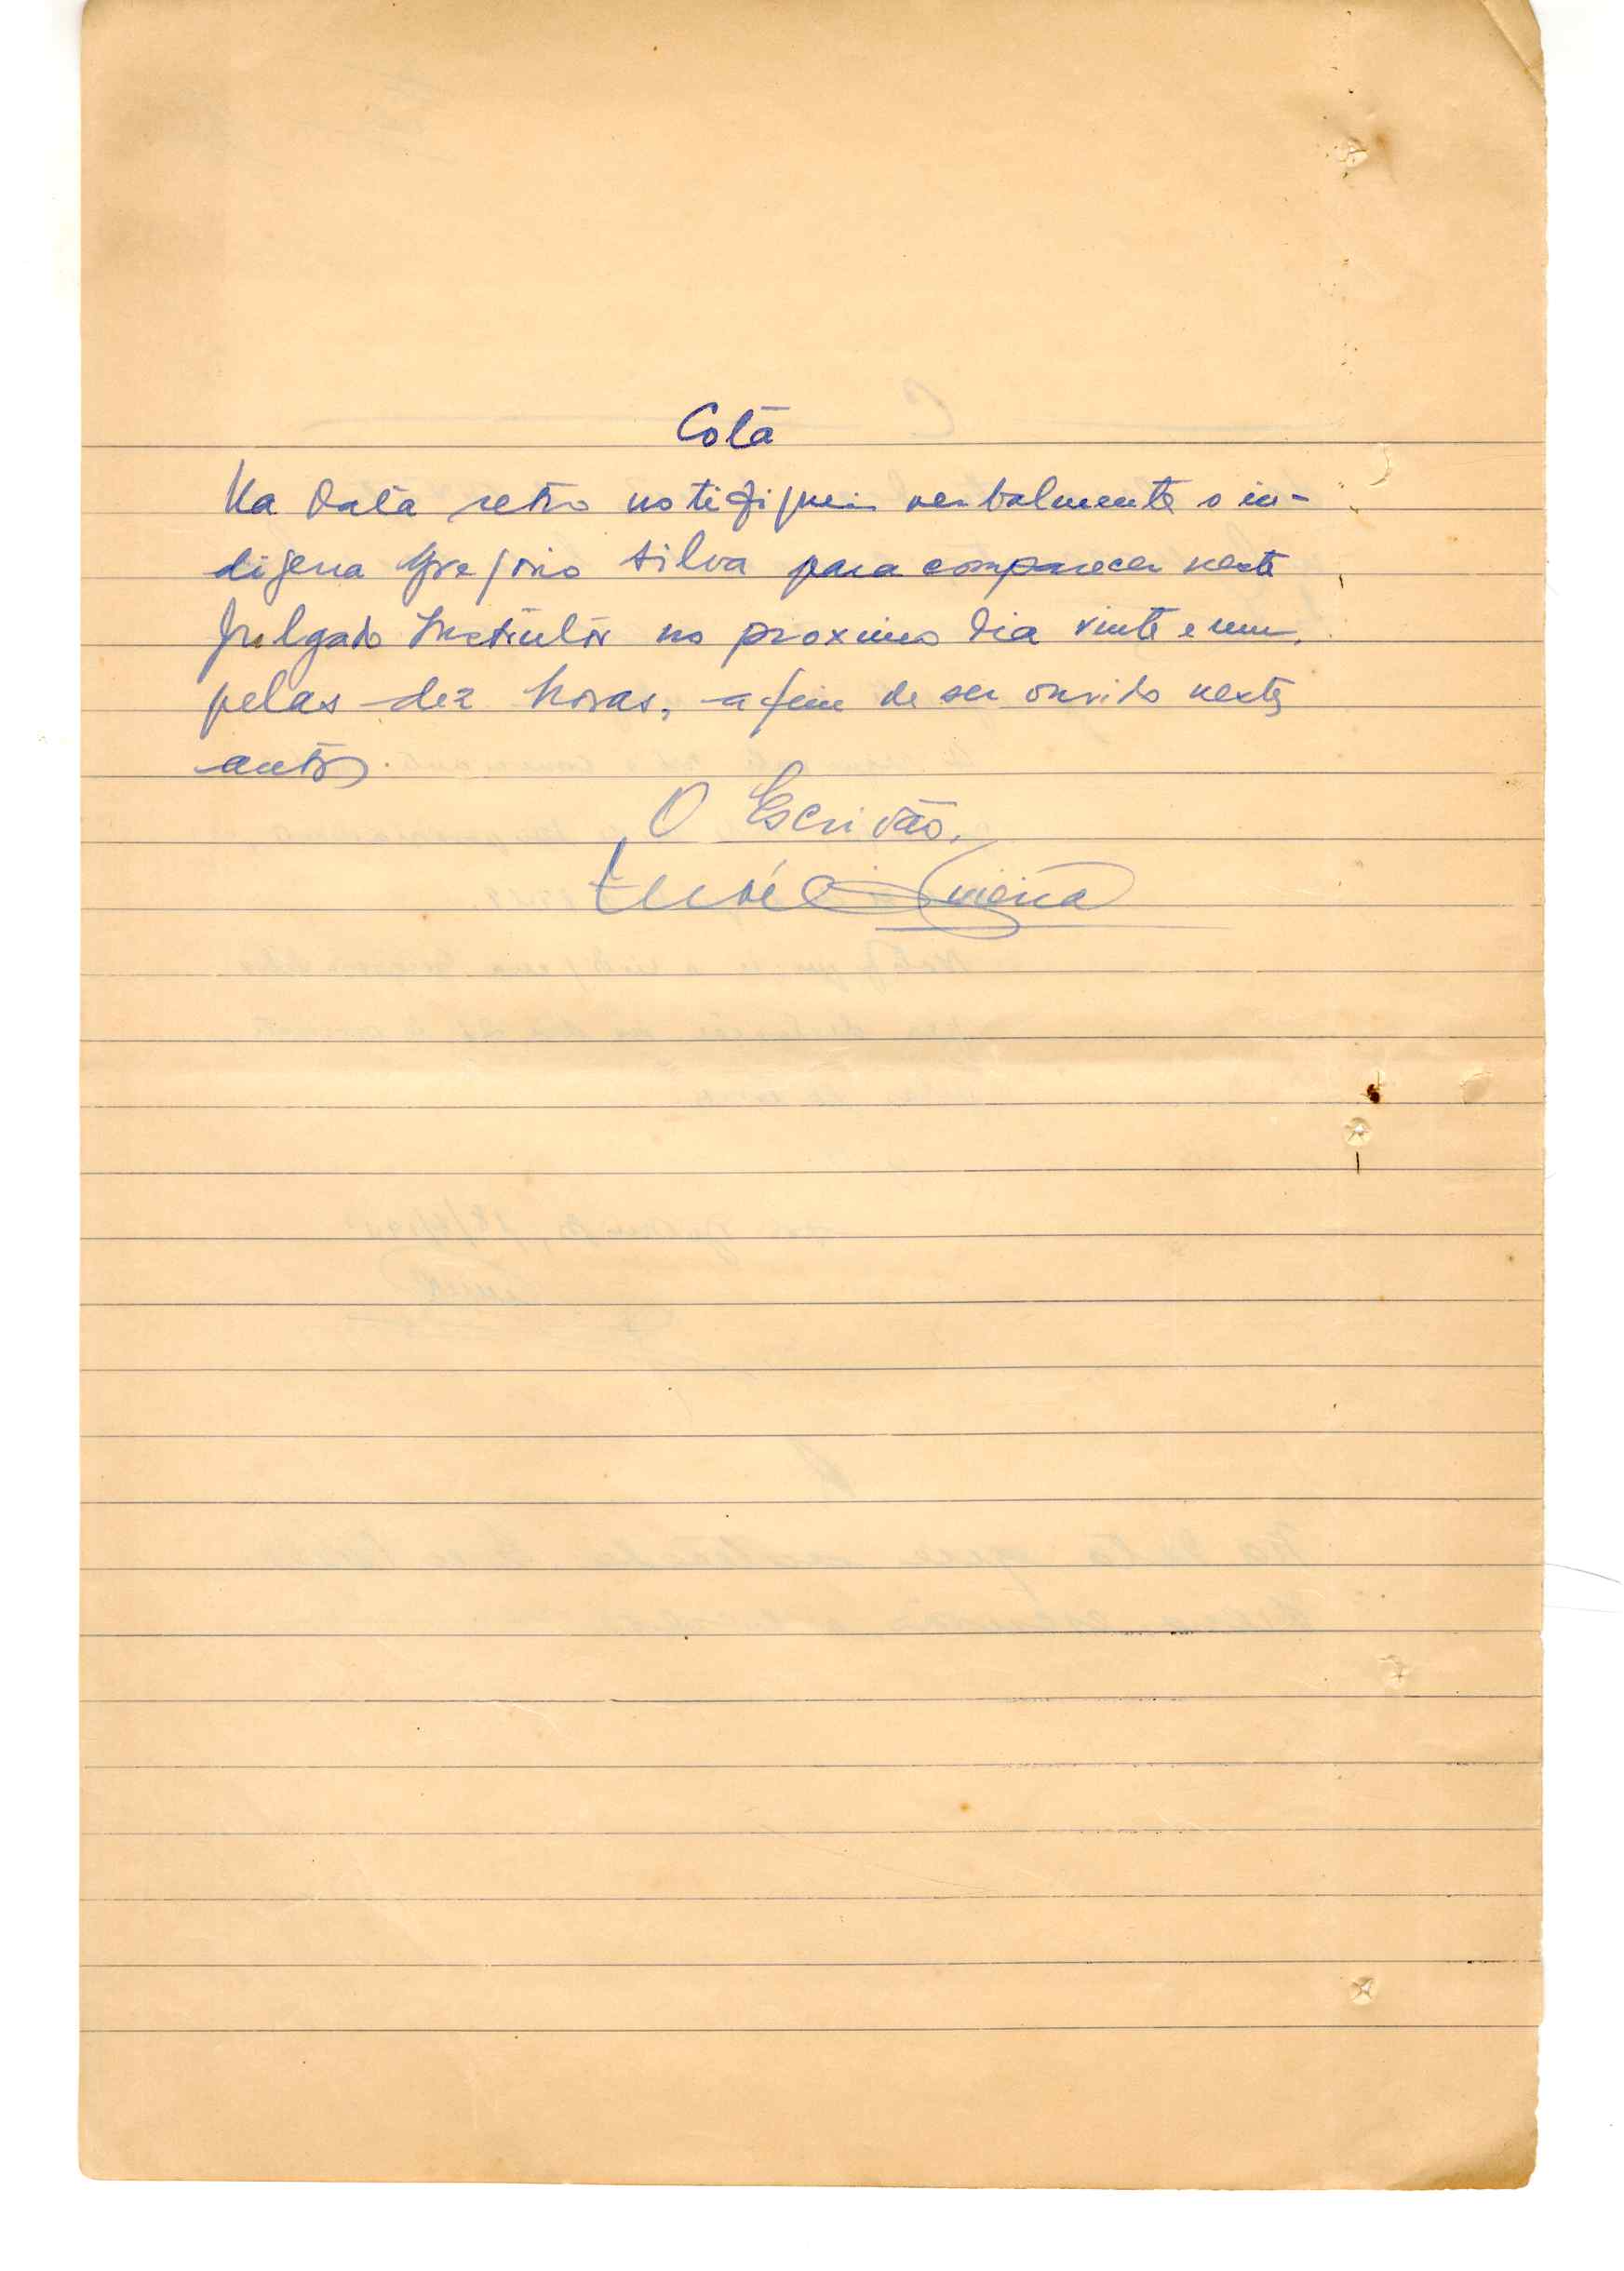 Cota
Na data retro notifiquei verbalmente o in-
digena Gregorio Silva para comparecer neste
Julgado Instrutor no proximo dia vinte e um,
pelas dez horas, afim de ser ouvido nestes
autos.
O Escrivão,